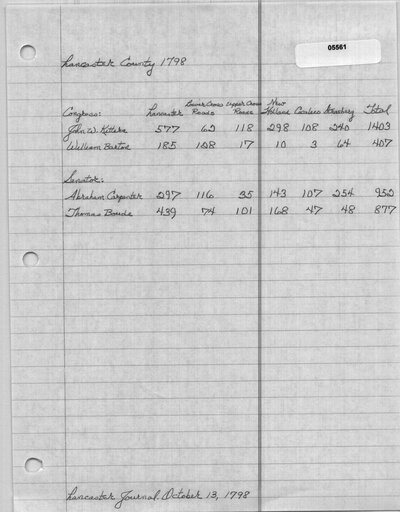 05561
Lancaster County 1798
Lower Cross Upper Cross New
Congress: Lancaster Roads Roads Holland Cocalico Strasburg Total
John W. Kittera 577 62 118 298 108 240 1403
William Barton 185 128 17 10 3 64 407
Senator:
Abraham Carpenter 297 116 35 143 107 254 952
Thomas Boude 439 74 101 168 47 48 877
Lancaster Journal October 13, 1798